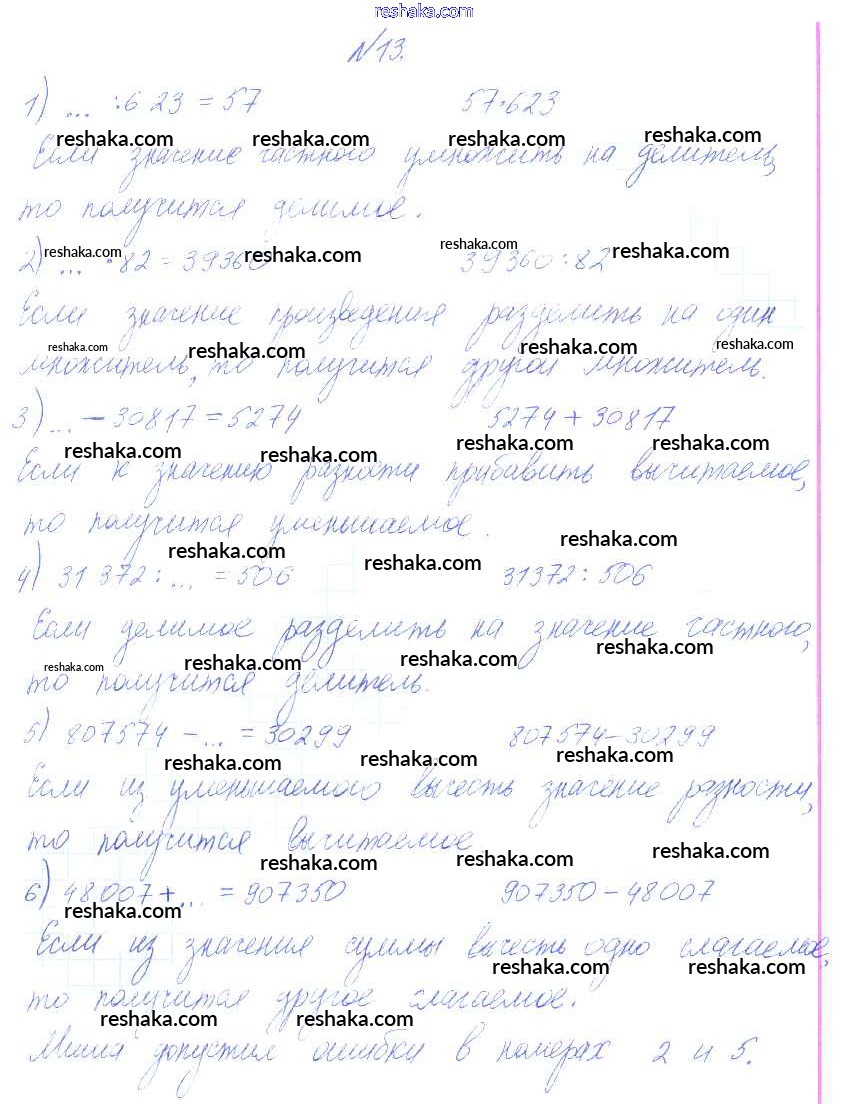 reshaka.com
№13.
1) ... :623 = 57 57·623
reshaka.com reshaka.com reshaka.com reshaka.com
Если значение частного умножить на делитель,
то получится делимое.
reshaka.com reshaka.com reshaka.com reshaka.com
2) ... · 82 = 39360 39360:82
Если значение произведения разделить на один
reshaka.com reshaka.com reshaka.com reshaka.com
множитель, то получится другой множитель.
3) ... - 30817 = 5274 5274 + 30817
reshaka.com reshaka.com reshaka.com reshaka.com
Если к значению разности прибавить вычитаемое,
то получится уменьшаемое.
reshaka.com reshaka.com reshaka.com
4) 31 372 : ... = 506 31372 : 506
Если делимое разделить на значение частного,
reshaka.com reshaka.com reshaka.com reshaka.com
то получится делитель.
5) 807574 - ... = 30299 807574-30299
reshaka.com reshaka.com reshaka.com
Если из уменьшаемого вычесть значение разности,
то получится вычитаемое
reshaka.com reshaka.com reshaka.com
6) 48007 + ... = 907350 907350 - 48007
reshaka.com
Если из значения суммы вычесть одно слагаемое,
reshaka.com reshaka.com
то получится другое слагаемое.
reshaka.com reshaka.com reshaka.com
Миша допустил ошибки в номерах 2 и 5.